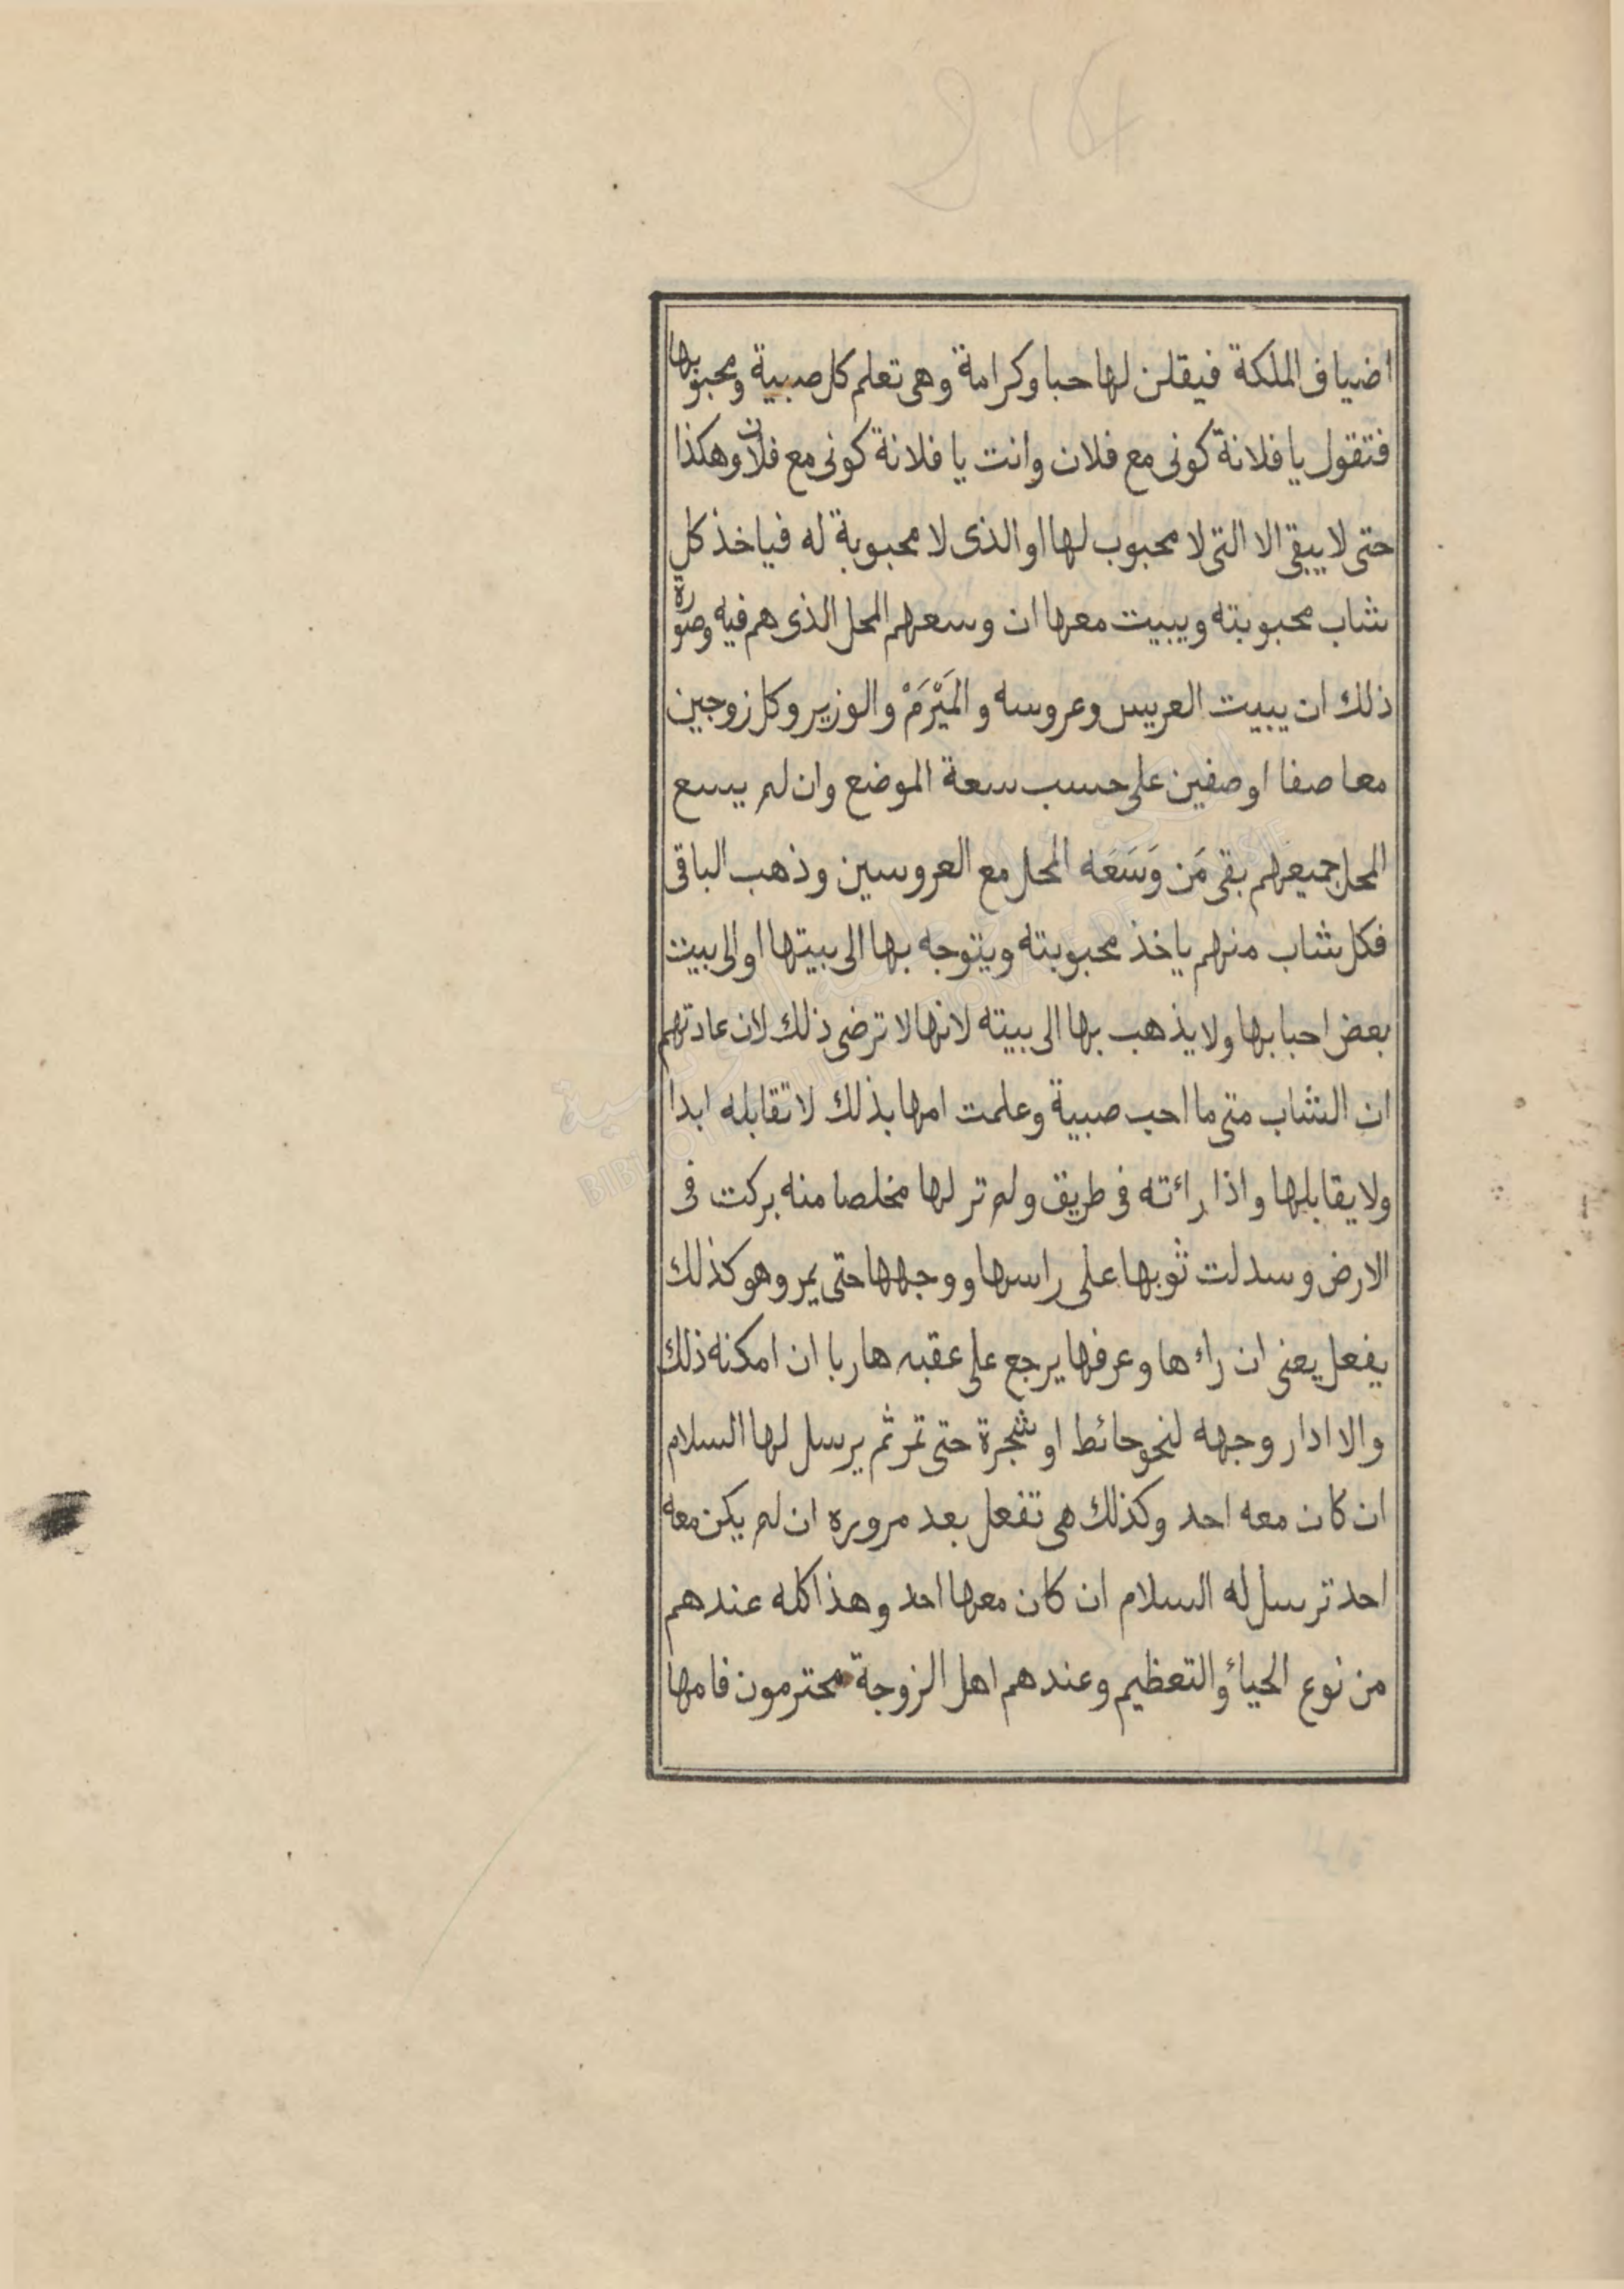 اضياف الملكة فيقلن لها حبا وكرامة وهى تعلم كل صبية ومحبوبها
فتقول يا فلانة كونى مع فلان وانت يا فلانة كونى مع فلان وهكذا
حتى لا يبقى الا التى لا محبوب لها او الذى لا محبوبة له فياخذ كل
شاب محبوبته ويبيت معها ان وسعهم المحل الذى هم فيه وصورة
ذلك ان يبيت العريس وعروسه والمَيْرَمْ والوزير وكل زوجين
معا صفا او صفين على حسب سعة الموضع وان لم يسع
المحل جميعهم بقى مَن وَسَعَه المحل مع العروسين وذهب الباقى
فكل شاب منهم ياخذ محبوبته ويتوجه بها الى بيتها او الى بيت
بعض احبابها ولا يذهب بها الى بيته لانها لا ترضى ذلك لان عادتهم
ان الشاب متى ما احب صبية وعلمت امها بذلك لا تقابله ابدا
ولا يقابلها واذا راءته فى طريق ولم تر لها مخلصا منه بركت فى
الارض وسدلت ثوبها على راسها ووجهها حتى يمر وهو كذلك
يفعل يعنى ان راءها وعرفها يرجع على عقبه هاربا ان امكنه ذلك
والا ادار وجهه لنحو حائط او شجرة حتى تمر ثم يرسل لها السلام
ان كان معه احد وكذلك هى تفعل بعد مروره ان لم يكن معه
احد ترسل له السلام ان كان معها احد وهذا كله عندهم
من نوع الحياء والتعظيم وعندهم اهل الزوجة محترمون فامها